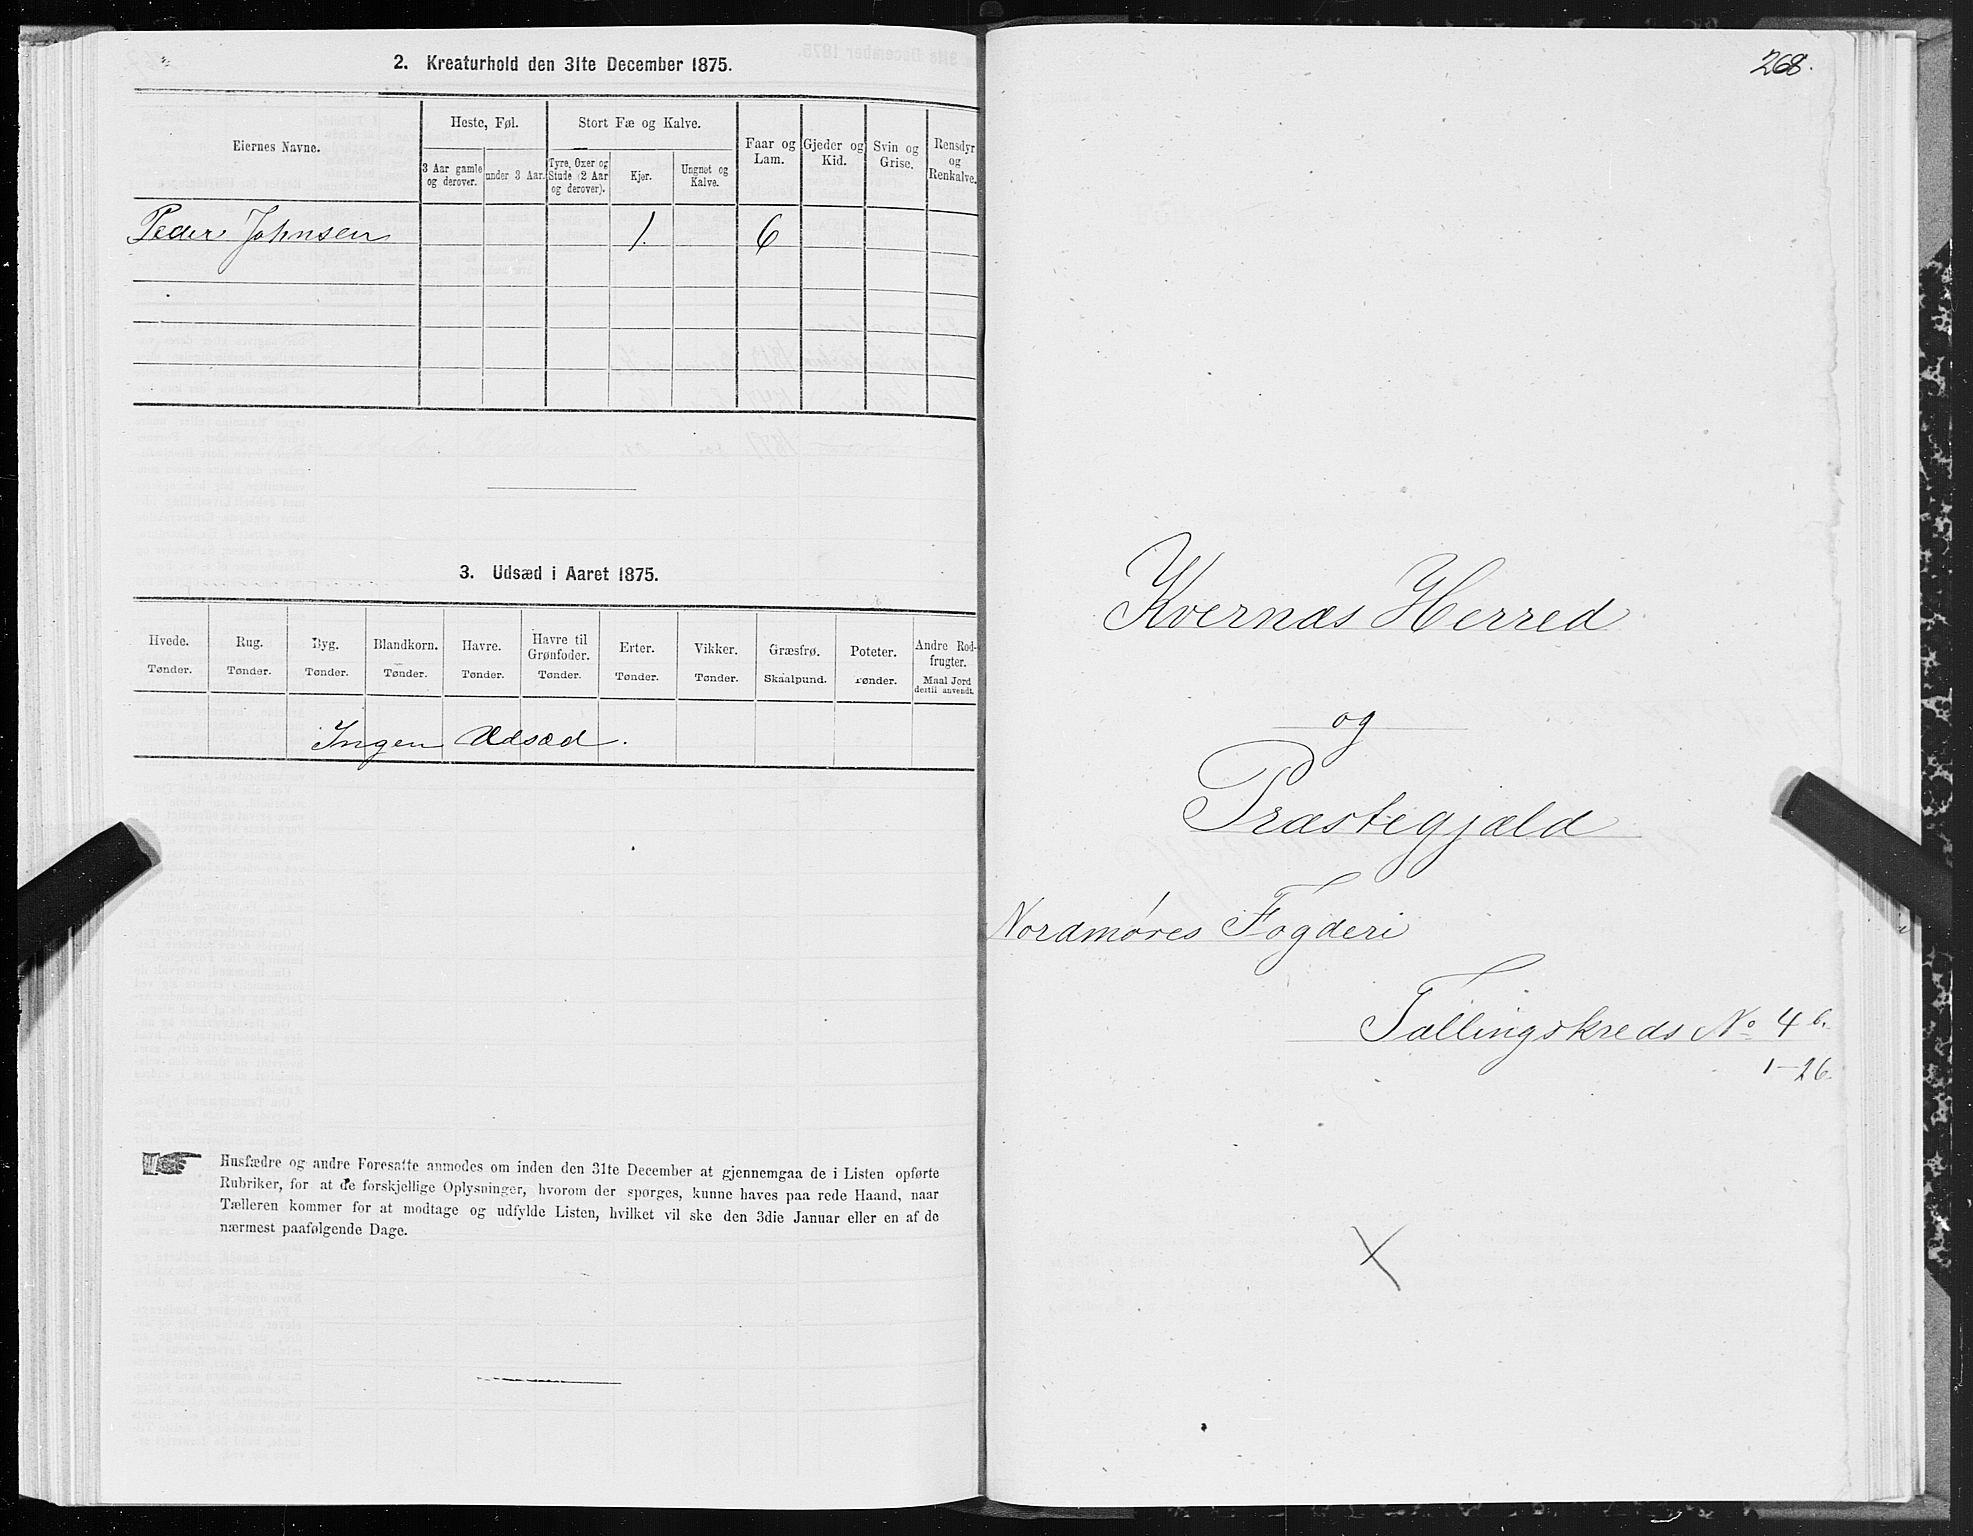 2. Kreaturhold den 31te December 1875.
Eiernes Navne.
Heste, Føl.
3 Aar gamle og derover.
under 3 Aar.
Stort Fæ og Kalve.
Tyre, Oxer og Stude (2 Aar og derover).
Kjør.
Ungnøt og Kalve.
Faar og Lam.
Gjeder og Kid.
Svin og Grise.
Rensdyr og Renkalve.
Peder Johnsen 1. 6
3. Udsæd i Aaret 1875.
Hvede. Rug. Byg. Blandkorn. Havre. Havre til Grønfoder. Erter. Vikker. Græsfrø. Poteter. Andre Rodfrugter.
Tønder. Tønder. Tønder. Tønder. Tønder. Tønder. Tønder. Tønder. Skaalpund. Tønder. Maal Jord dertil anvendt.
Ingen Udsæd.
Husfædre og andre Foresatte anmodes om inden den 31te December at gjennemgaa de i Listen opførte
Rubriker, for at de forskjellige Oplysninger, hvorom der spørges, kunne haves paa rede Haand, naar
Tælleren kommer for at modtage og udfylde Listen, hvilket vil ske den 3die Januar eller en af de
nærmest paafølgende Dage.
268.
Kvernæs Herred
og
Præstegjæld
Nordmøres Fogderi
Tællingskreds No 4 b.
1-26.
X